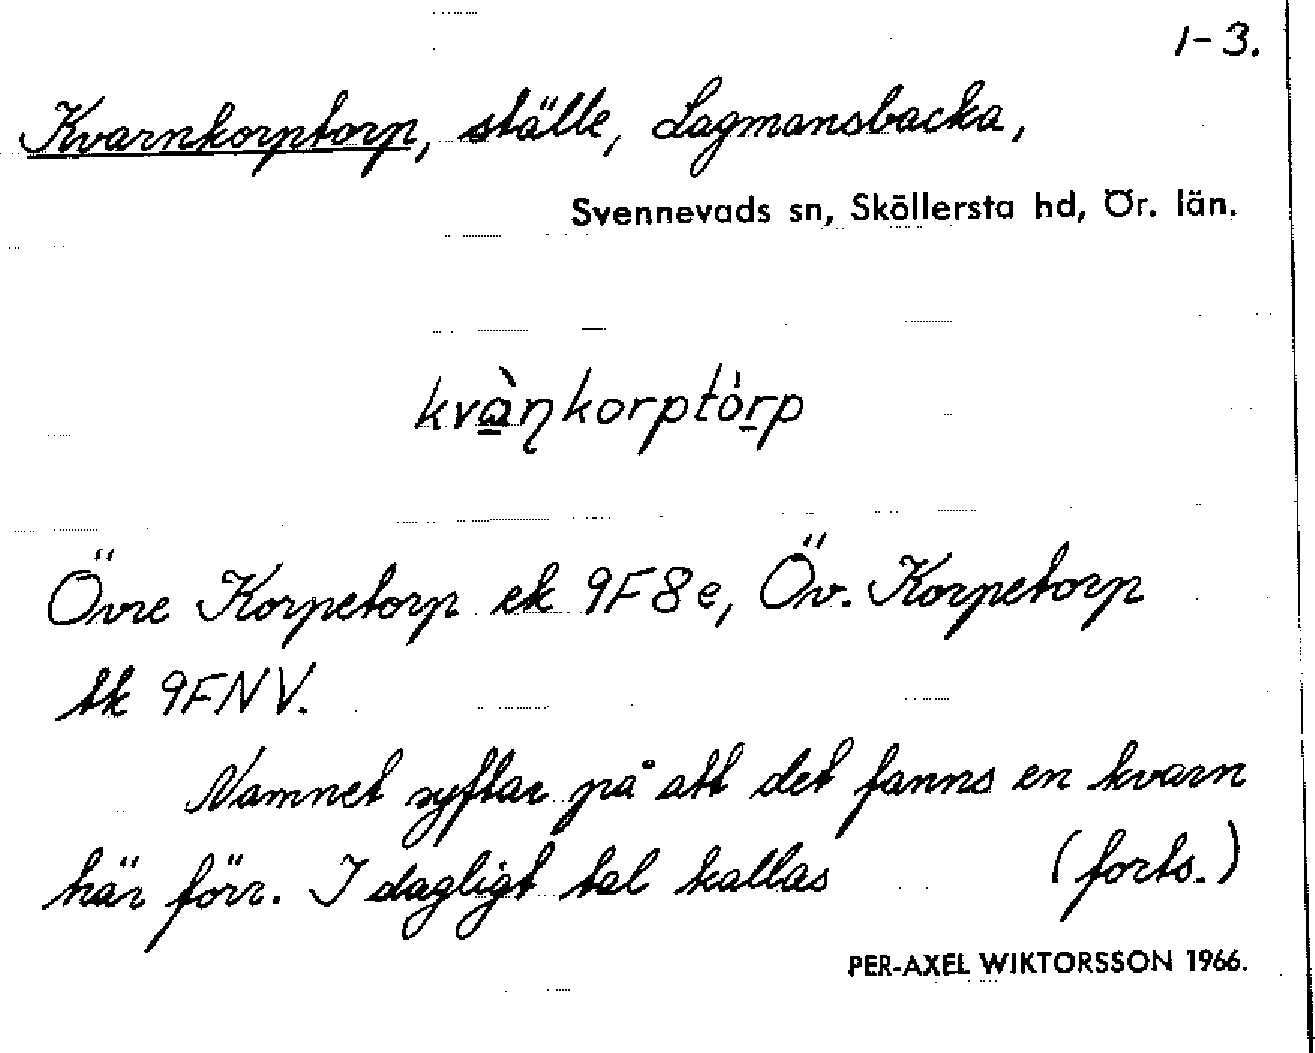 1-3.
Kvarnkorptorp, ställe, Lagmansbacka,
Svennevads sn, Sköllersta hd, Ör. län.
kvàɳkorptórp
Övre Korpetorp ek 9F8e, Öv. Korpetorp
tk 9FNV.
Namnet syftar på att det fanns en kvarn
här förr. I dagligt tal kallas (forts.)
PER-AXEL WIKTORSSON 1966.